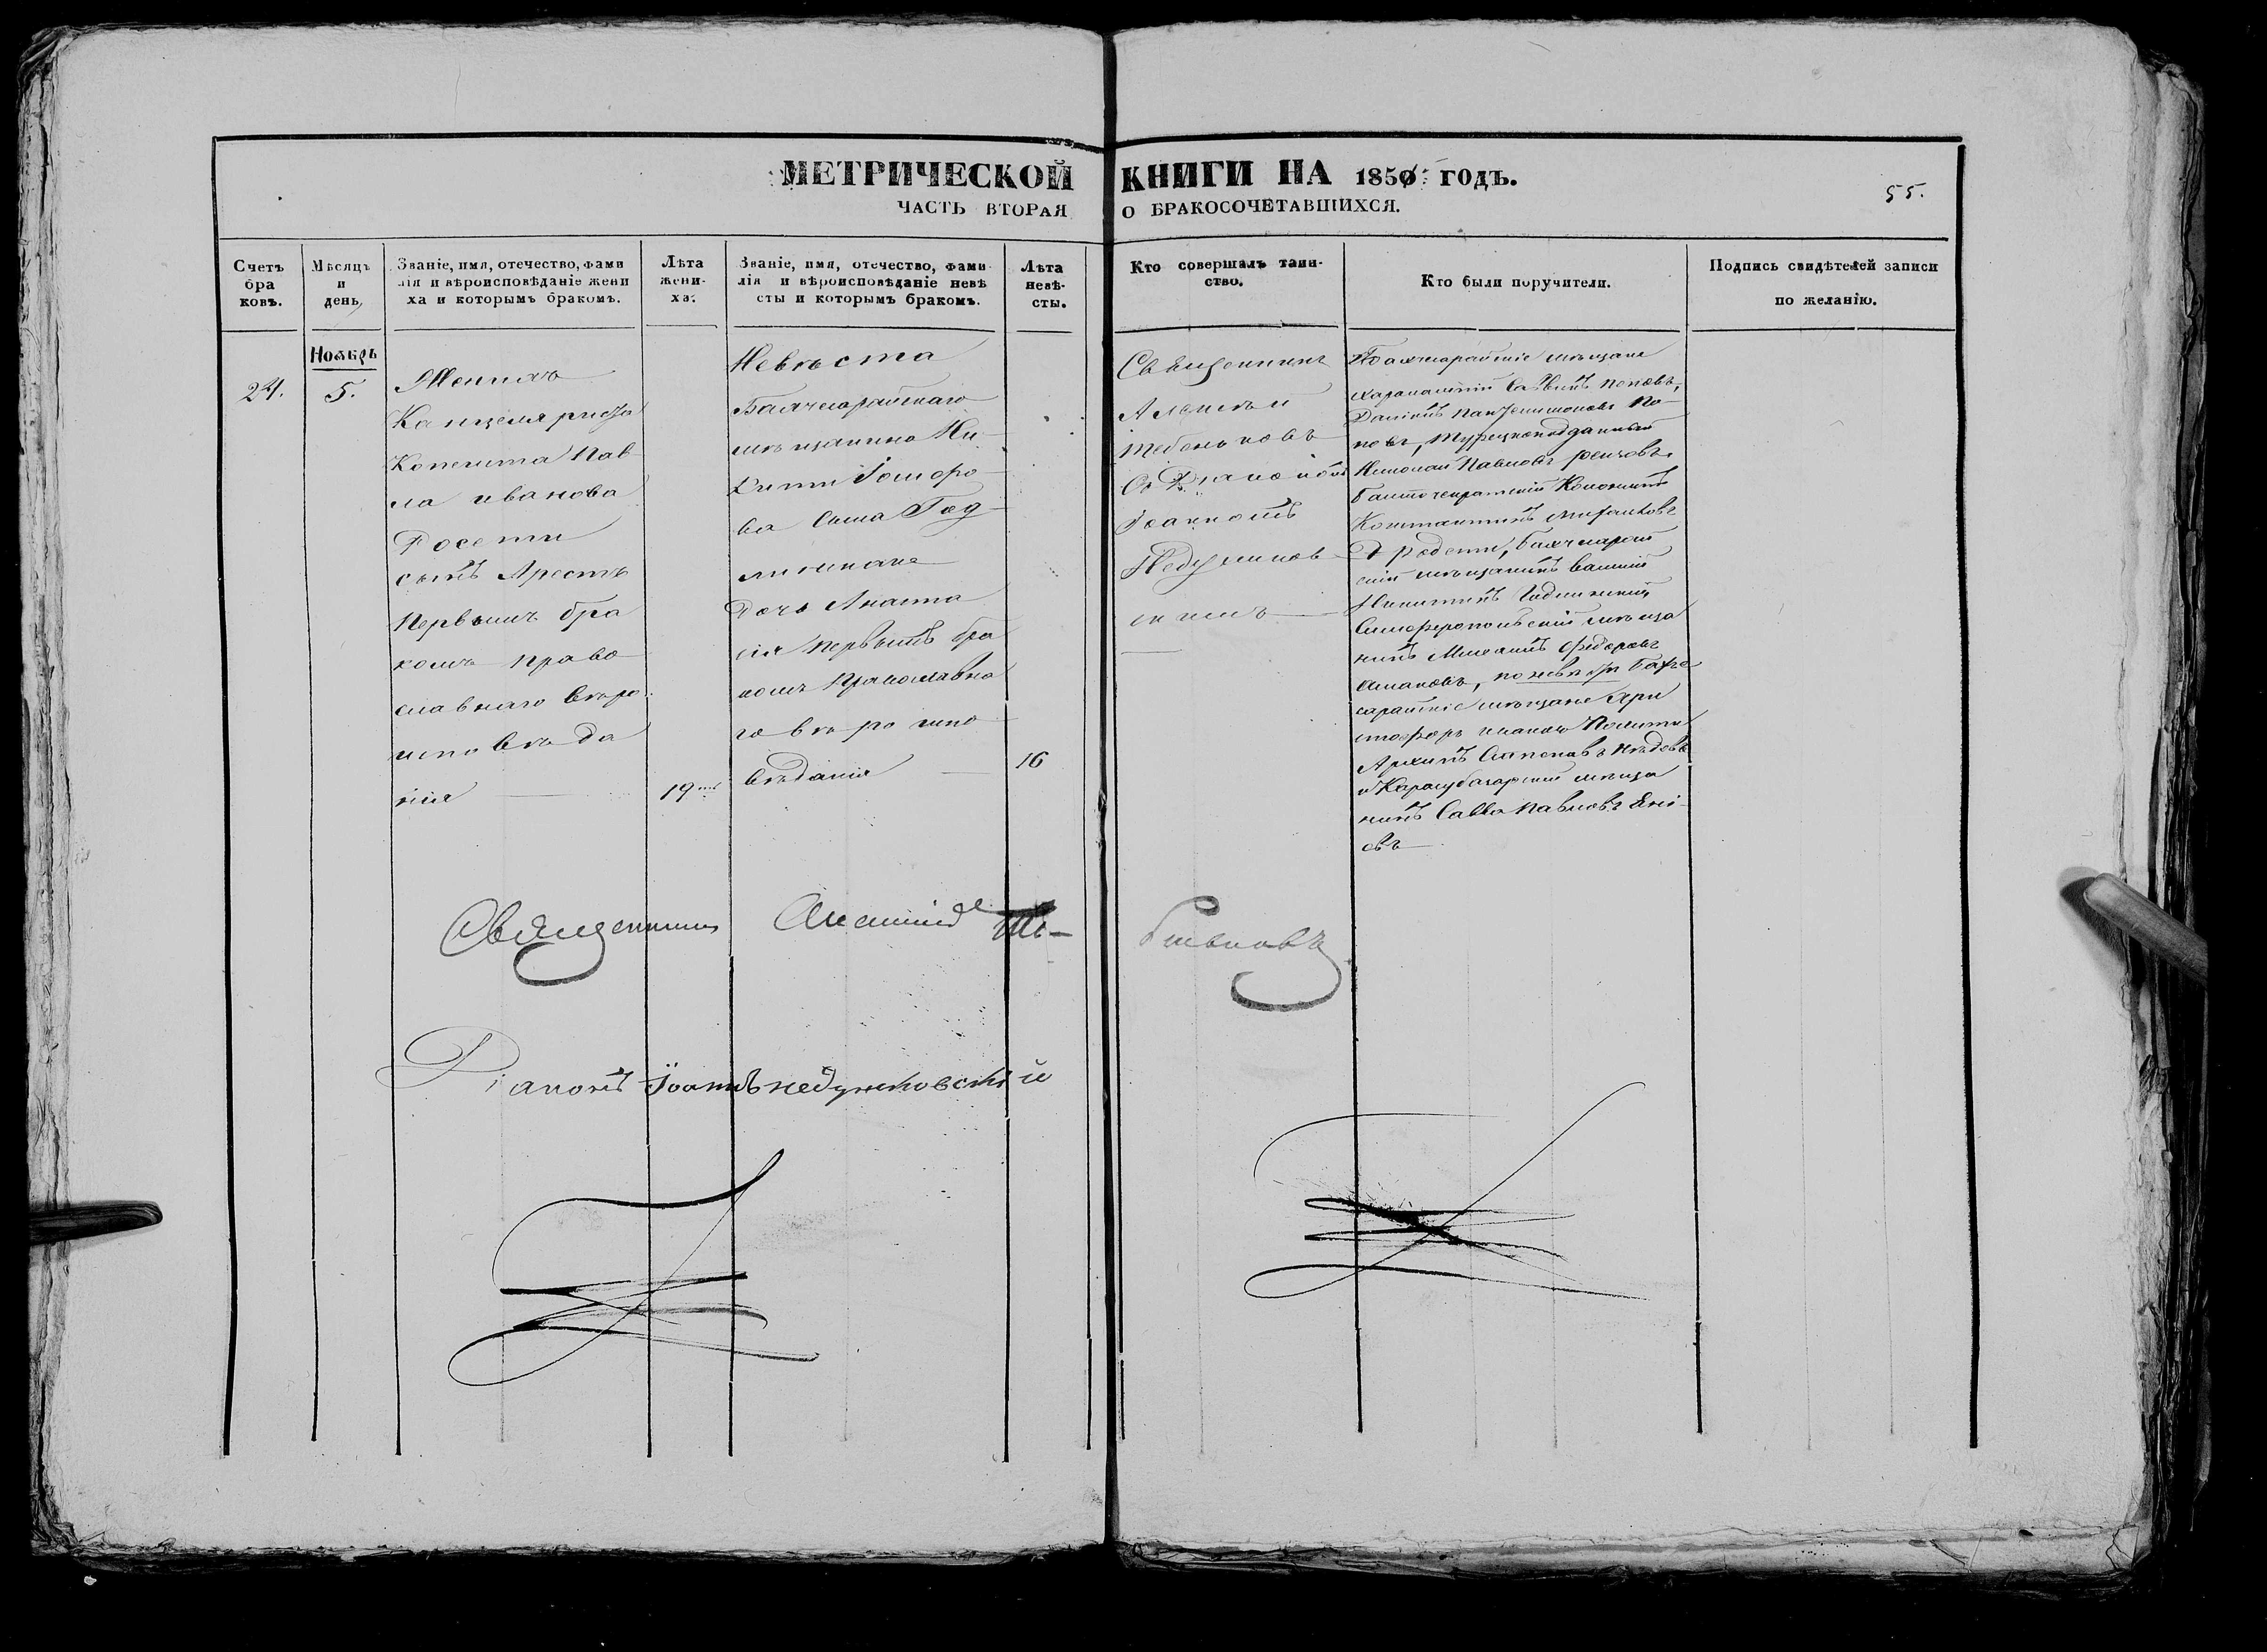 МЕТРИЧЕСКОЙ КНИГИ НА 1850 ГОДЪ.
55.
ЧАСТЬ ВТОРАЯ О БРАКОСОЧЕТАВШИХСЯ.
Счетъ
бра
ковъ.
Мѣсяцъ
и
день,
Званіе, имя, отечество, фами
лія и вѣроисповѣданіе жени
ха и которымъ бракомъ.
Лѣта
жени-
ха.
Званіе, имя, отечество, фами
лія и вѣроисповѣданіе невѣ
сты и которымъ бракомъ.
Лѣта
невѣ-
сты.
Кто совершалъ таин-
ство.
Кто были поручители.
Подпись свидѣтелей записи
по желанію.
24.
Ноябрь
5.
Женихъ
Канцеляриста
Копеиста Пав
ла Иванова
Росети
сынъ Арестъ
Первымъ бра
комъ право
славнаго вѣро
исповѣда
нія
19
Невѣста
Бахчисарайскаго
мѣщанина Ни-
кити
ва сына
Дочь Анаста
сія первымъ бра
комъ православна
го вѣро испо
вѣданія
16
Священникъ
Алексѣй
Тебеньковъ
Съ Діакономъ
Іоанномъ
Недзѣлков
скимъ
Бахчисарайскіе мѣщане
Поповъ,
По-
повъ, Турецкоподданный
Николай Павловъ
Константинъ Михайловъ
Бахчисарай
скій мѣщанинъ Василій
Никитинъ
Симферопольскій мѣща
нинъ Михаилъ Федоровъ
по невѣстѣ Бахче
сарайскіе мѣщане Хри
стофоръ
Архипъ
и Карасубазарскій мѣща
нинъ Савва Павловъ Ені-
овъ
Священникъ Алексій Те-
беньковъ
Діаконъ Іоаннъ